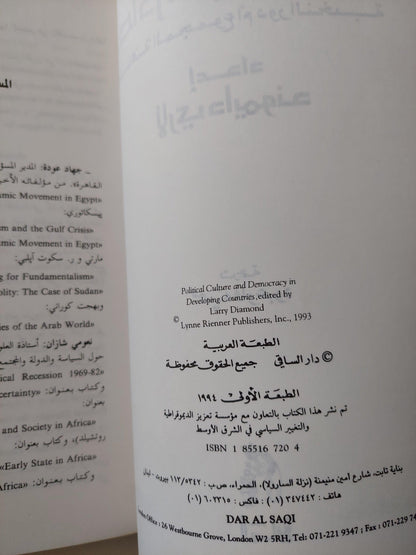 جهاد عودة: المدير المسؤ
القاهرة». من مؤلفاته الأخير
amic Movement in Egypt»
بيسكاتوري:
sm and the Gulf Crisis»
amic Movement in Egypt»
مارتي و ر. سكوت آبلبي:
ng for Fundamentalism»
bility: The Case of Sudan»
وبهجت كوراني:
ies of the Arab World»
نعومي شازان: أستاذة العلو
حول السياسة والدولة والمجتمع
ical Recession 1969-82»
certainty» وكتاب بعنوان:
بعنوان:
and Society in Africa»
روتشيلد)، كتاب بعنوان:
«Early State in Africa»
Africa» وكتاب بعنوان:
إعداد
لاري دايموند
ترجمة
Political Culture and Democracy in
Developing Countries, edited by
Larry Diamond
© Lynne Rienner Publishers, Inc., 1993
الطبعة العربية
© دار الساقي جميع الحقوق محفوظة
الطبعة الأولى ١٩٩٤
تم نشر هذا الكتاب بالتعاون مع مؤسسة تعزيز الديموقراطية
والتغيير السياسي في الشرق الأوسط
ISBN 1 85516 720 4
بناية ثابت، شارع أمين منيمنة (نزلة السارولا)، الحمراء، ص.ب: ١١٣/٥٣٤٢ بيروت - لبنان
هاتف: ٣٤٧٤٤٢ (٠١) فاكس: ٦٠٢٣١٥ (٠١)
DAR AL SAQI
London Office: 26 Westbourne Grove, London W2 5RH, Tel: 071-221 9347; Fax: 071-229